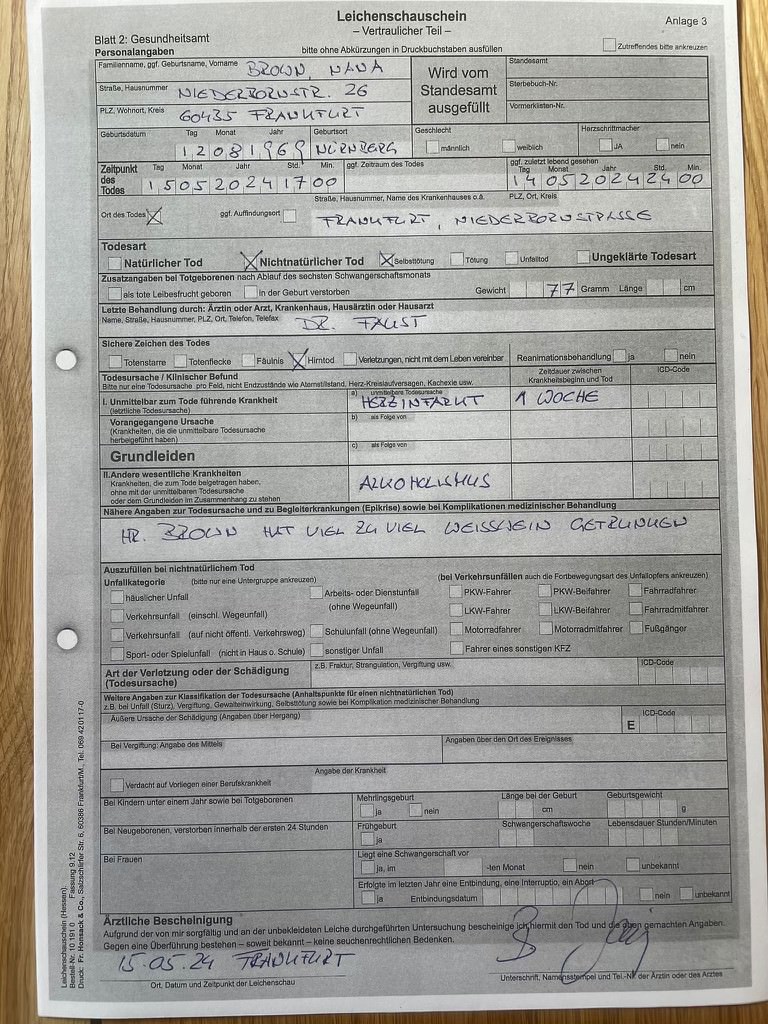 Leichenschauschein
– Vertraulicher Teil –
Anlage 3
Blatt 2: Gesundheitsamt
Personalangaben
bitte ohne Abkürzungen in Druckbuchstaben ausfüllen
Zutreffendes bitte ankreuzen
Familienname, ggf. Geburtsname, Vorname BROWN, NANA
Straße, Hausnummer NIEDERBORNSTR. 26
PLZ, Wohnort, Kreis 60435 FRANKFURT
Wird vom
Standesamt
ausgefüllt
Standesamt
Sterbebuch-Nr.
Vormerklisten-Nr.
Geburtsdatum Tag Monat Jahr Geburtsort Geschlecht Herzschrittmacher
12081969 NÜRNBERG männlich weiblich JA nein
Zeitpunkt des Todes Tag Monat Jahr Std. Min. ggf. Zeitraum des Todes ggf. zuletzt lebend gesehen Tag Monat Jahr Std. Min.
15052024 1700 14052024 2400
Straße, Hausnummer, Name des Krankenhauses o.ä. PLZ, Ort, Kreis
Ort des Todes ggf. Auffindungsort FRANKFURT, NIEDERBORNSTRASSE
Todesart
Natürlicher Tod Nichtnatürlicher Tod Selbsttötung Tötung Unfalltod Ungeklärte Todesart
Zusatzangaben bei Totgeborenen nach Ablauf des sechsten Schwangerschaftsmonats
als tote Leibesfrucht geboren in der Geburt verstorben Gewicht 77 Gramm Länge cm
Letzte Behandlung durch: Ärztin oder Arzt, Krankenhaus, Hausärztin oder Hausarzt
Name, Straße, Hausnummer, PLZ, Ort, Telefon, Telefax DR. FAUST
Sichere Zeichen des Todes
Totenstarre Totenflecke Fäulnis Hirntod Verletzungen, nicht mit dem Leben vereinbar Reanimationsbehandlung ja nein
Todesursache / Klinischer Befund
Bitte nur eine Todesursache pro Feld, nicht Endzustände wie Atemstillstand, Herz-Kreislaufversagen, Kachexie usw.
Zeitdauer zwischen
Krankheitsbeginn und Tod
ICD-Code
I. Unmittelbar zum Tode führende Krankheit
(letztliche Todesursache)
a) unmittelbare Todesursache
HERZINFARKT 1 WOCHE
Vorangegangene Ursache
(Krankheiten, die die unmittelbare Todesursache
herbeigeführt haben)
b) als Folge von
Grundleiden
c) als Folge von
II. Andere wesentliche Krankheiten
Krankheiten, die zum Tode beigetragen haben,
ohne mit der unmittelbaren Todesursache
oder dem Grundleiden im Zusammenhang zu stehen
ALKOHOLISMUS
Nähere Angaben zur Todesursache und zu Begleiterkrankungen (Epikrise) sowie bei Komplikationen medizinischer Behandlung
HR. BROWN HAT VIEL ZU VIEL WEISSWEIN GETRUNKEN
Auszufüllen bei nichtnatürlichem Tod
Unfallkategorie (bitte nur eine Untergruppe ankreuzen) (bei Verkehrsunfällen auch die Fortbewegungsart des Unfallopfers ankreuzen)
häuslicher Unfall Arbeits- oder Dienstunfall PKW-Fahrer PKW-Beifahrer Fahrradfahrer
(ohne Wegeunfall)
Verkehrsunfall (einschl. Wegeunfall) LKW-Fahrer LKW-Beifahrer Fahrradmitfahrer
Verkehrsunfall (auf nicht öffentl. Verkehrsweg) Schulunfall (ohne Wegeunfall) Motorradfahrer Motorradmitfahrer Fußgänger
Sport- oder Spielunfall (nicht in Haus o. Schule) sonstiger Unfall Fahrer eines sonstigen KFZ
Art der Verletzung oder der Schädigung
(Todesursache)
z.B. Fraktur, Strangulation, Vergiftung usw.
ICD-Code
Weitere Angaben zur Klassifikation der Todesursache (Anhaltspunkte für einen nichtnatürlichen Tod)
z.B. bei Unfall (Sturz), Vergiftung, Gewalteinwirkung, Selbsttötung sowie bei Komplikation medizinischer Behandlung
Äußere Ursache der Schädigung (Angaben über Hergang) ICD-Code
E
Bei Vergiftung: Angabe des Mittels Angaben über den Ort des Ereignisses
Angabe der Krankheit
Verdacht auf Vorliegen einer Berufskrankheit
Bei Kindern unter einem Jahr sowie bei Totgeborenen Mehrlingsgeburt ja nein Länge bei der Geburt cm Geburtsgewicht g
Bei Neugeborenen, verstorben innerhalb der ersten 24 Stunden Frühgeburt ja Schwangerschaftswoche Lebensdauer Stunden/Minuten
Bei Frauen Liegt eine Schwangerschaft vor
ja, im -ten Monat nein unbekannt
Erfolgte im letzten Jahr eine Entbindung, eine Interruptio, ein Abort
ja Entbindungsdatum nein unbekannt
Ärztliche Bescheinigung
Aufgrund der von mir sorgfältig und an der unbekleideten Leiche durchgeführten Untersuchung bescheinige ich hiermit den Tod und die oben gemachten Angaben.
Gegen eine Überführung bestehen – soweit bekannt – keine seuchenrechtlichen Bedenken.
15.05.24 FRANKFURT
Ort, Datum und Zeitpunkt der Leichenschau
Unterschrift, Namensstempel und Tel.-Nr. der Ärztin oder des Arztes
Leichenschauschein (Hessen).
Bestell-Nr. 10 191 0 Fassung 9.12
Druck: Fr. Honsack & Co., Salzschlirfer Str. 6, 60386 Frankfurt/M., Tel. 069 42 01 17-0